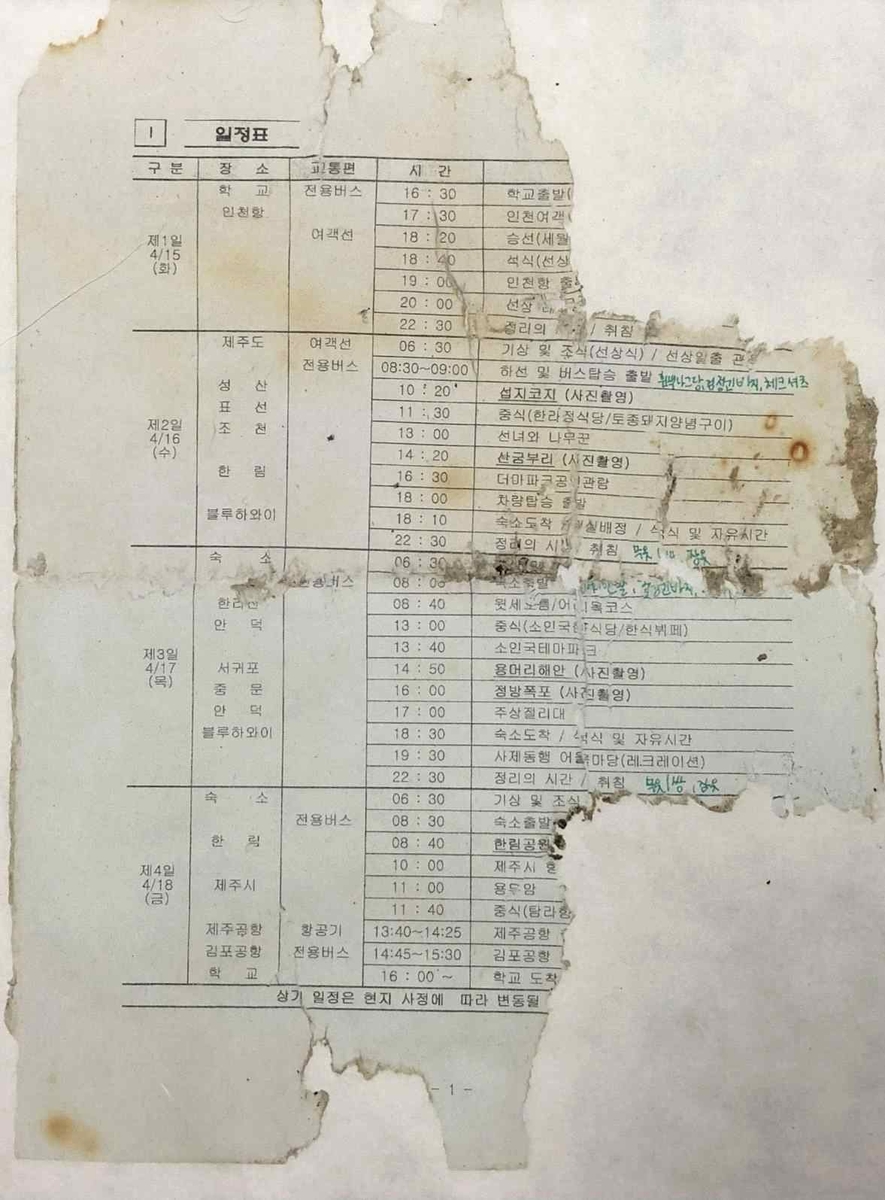 I 일정표
구 분 장 소 교통편 시 간
학 교 전용버스 16 : 30 학교출발(
인천항 17 : 30 인천여객
제1일 여객선 18 : 20 승선(세월
4/15 18 : 40 석식(선상
(화) 19 : 00 인천항 출
20 : 00 선상
22 : 30 정리의 / 취침
제주도 여객선 06 : 30 기상 및 조식(선상식) / 선상일출 관
전용버스 08:30~09:00 하선 및 버스탑승 출발
성 산 10 : 20 섭지코지 (사진촬영)
제2일 표 선 11 : 30 중식(한라정식당/토종돼지양념구이)
4/16 조 천 13 : 00 선녀와 나무꾼
(수) 14 : 20 산굼부리 (사진촬영)
한 림 16 : 30 더마파크공연관람
18 : 00 차량탑승 출발
블루하와이 18 : 10 숙소도착 / 석식 및 자유시간
22 : 30 정리의 시간 / 취침
숙 소 06 : 30
전용버스 08 : 00 숙소출발
한라산 08 : 40 윗세오름/어리목코스
안 덕 13 : 00 중식(소인국 식당/한식뷔페)
제3일 13 : 40 소인국테마파크
4/17 서귀포 14 : 50 용머리해안 (사진촬영)
(목) 중 문 16 : 00 정방폭포 (사진촬영)
안 덕 17 : 00 주상절리대
블루하와이 18 : 30 숙소도착 / 석식 및 자유시간
19 : 30 사제동행 어울마당(레크레이션)
22 : 30 정리의 시간 / 취침
숙 소 06 : 30 기상 및 조식
전용버스 08 : 30 숙소출발
한 림 08 : 40 한림공원
제4일 10 : 00 제주시
4/18 제주시 11 : 00 용두암
(금) 11 : 40 중식(탐라
제주공항 항공기 13:40~14:25 제주공항
김포공항 전용버스 14:45~15:30 김포공항
학 교 16 : 00 ~ 학교 도착
상기 일정은 현지 사정에 따라 변동될
- 1 -